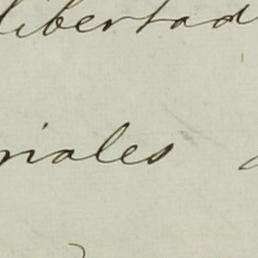 libertad
riales